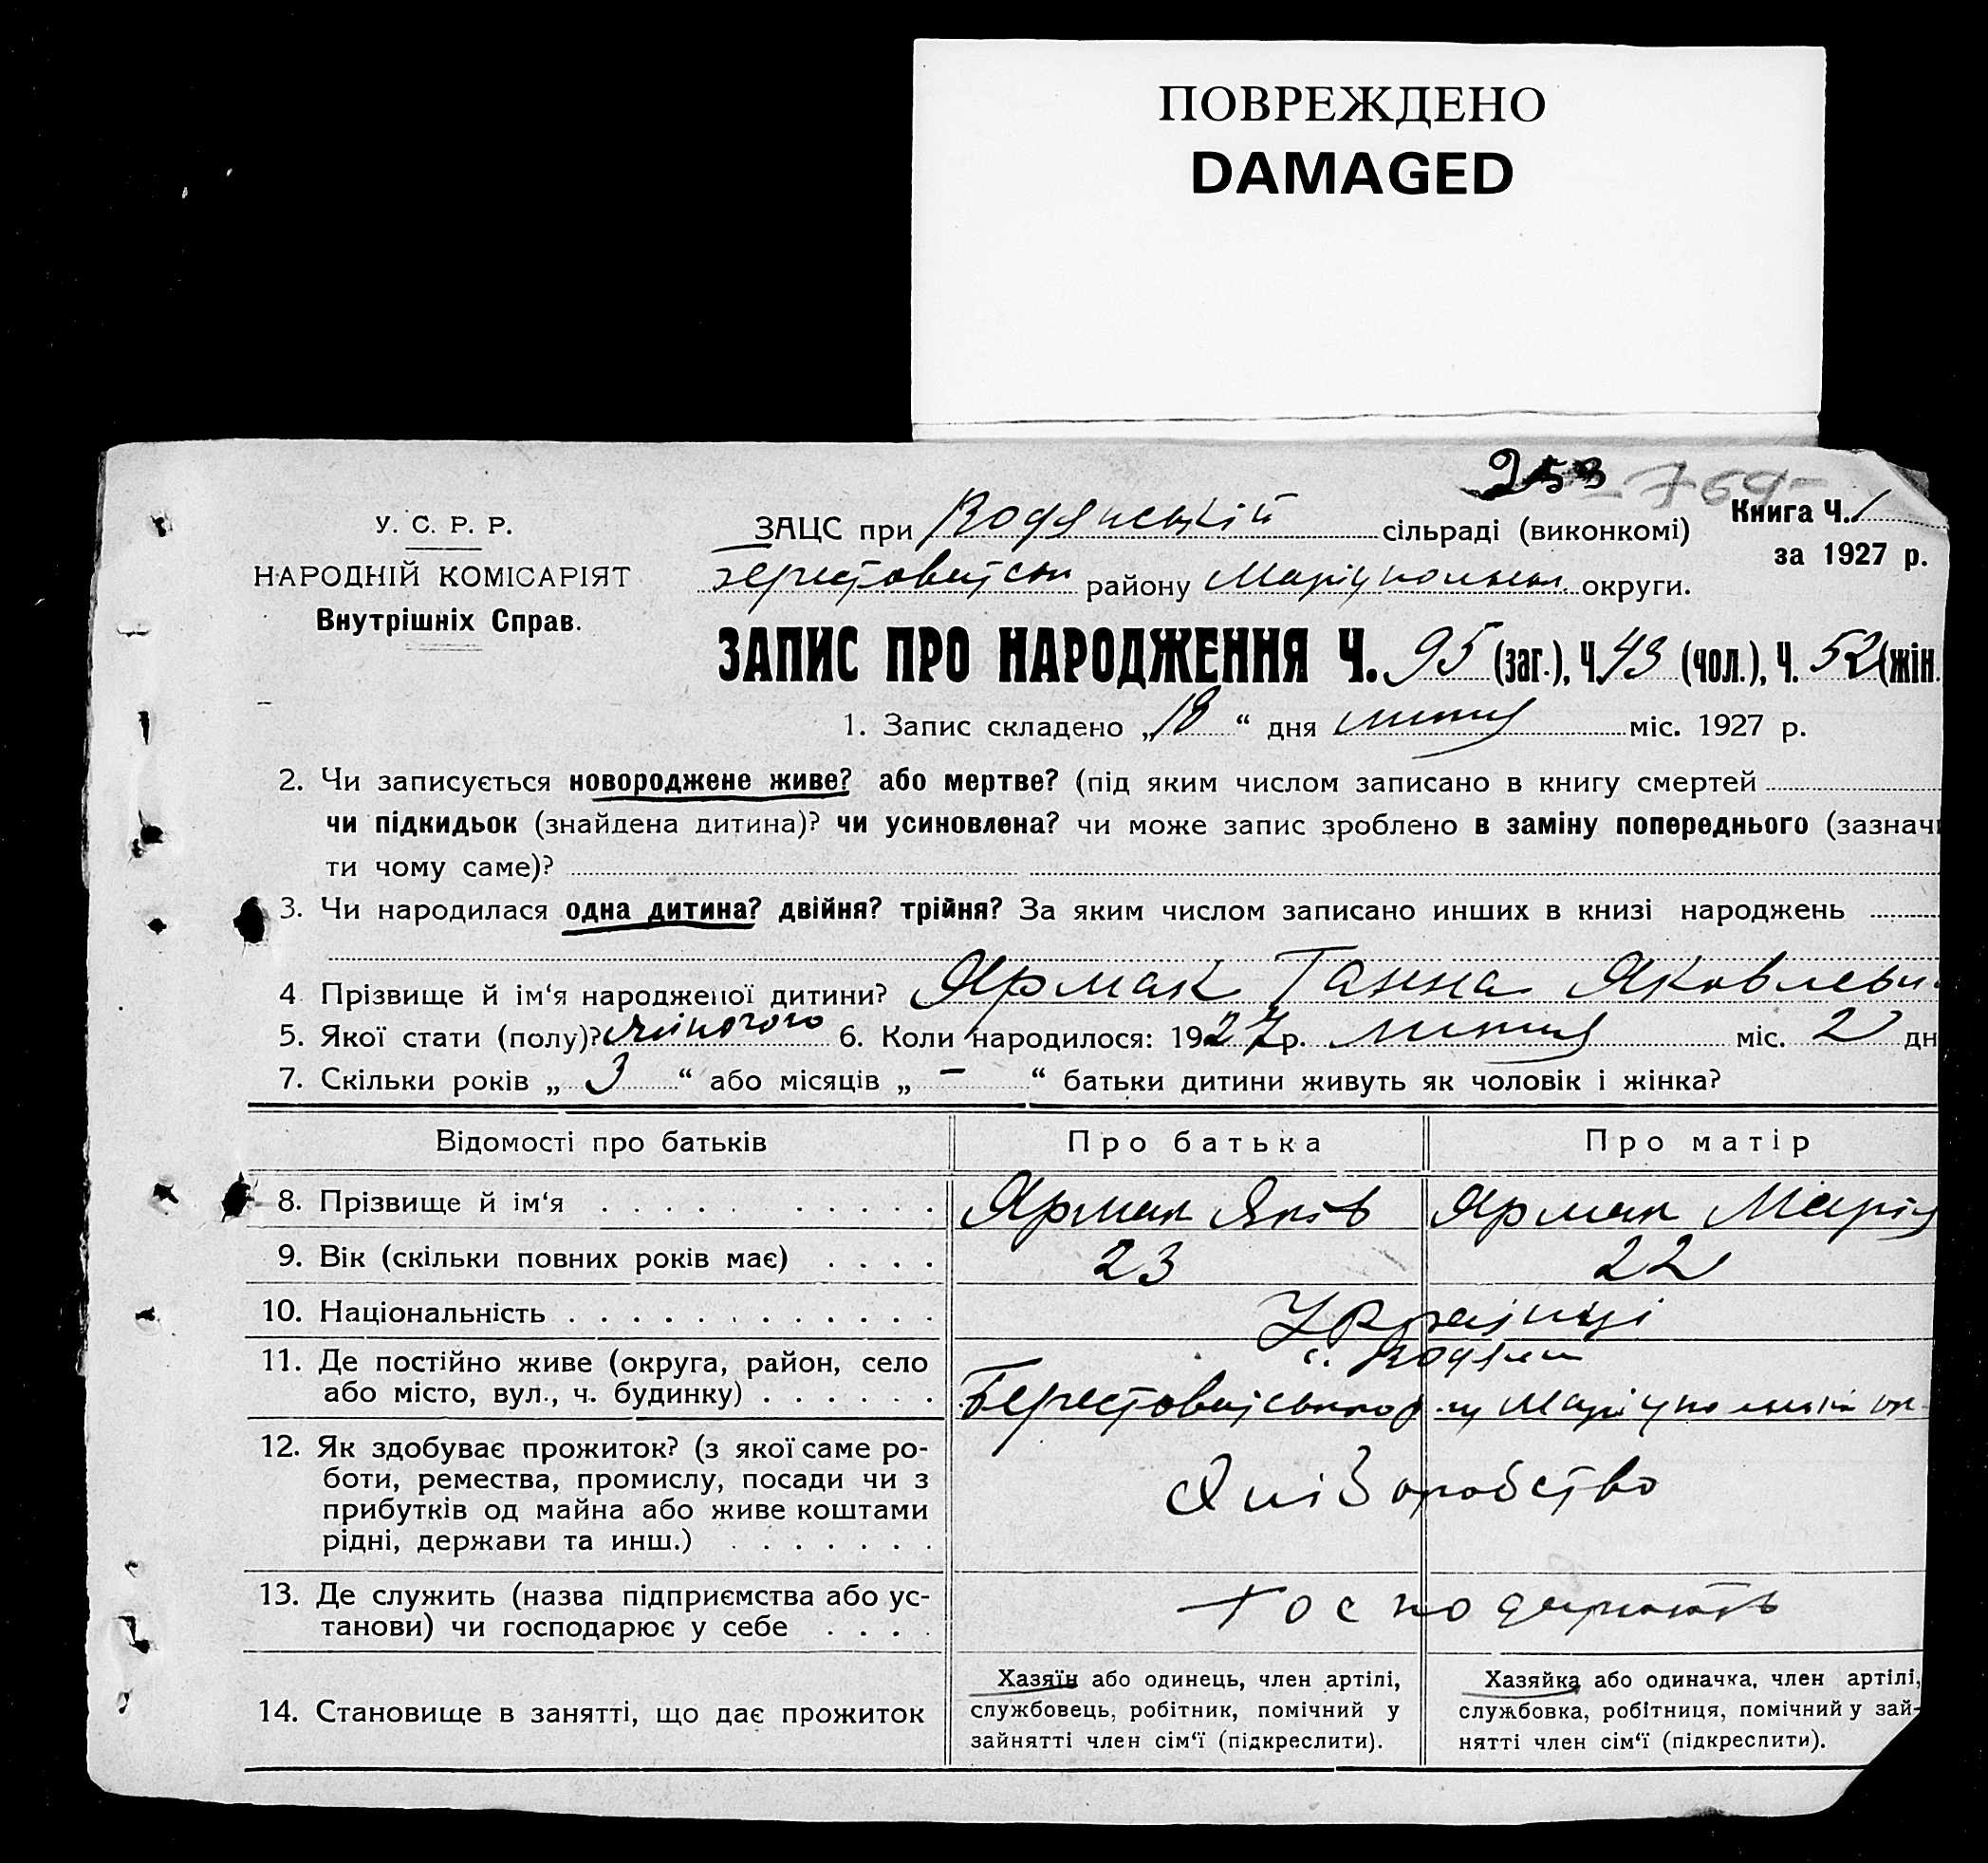 ПОВРЕЖДЕНО
DAMAGED
253 - 769 -
У. С. Р. Р.
НАРОДНІЙ КОМІСАРІЯТ
Внутрішніх Справ.
ЗАЦС при Водянській сільраді (виконкомі)
Книга Ч. 1
за 1927 р.
району Маріупольськ. округи.
ЗАПИС ПРО НАРОДЖЕННЯ Ч. 95 (заг.), Ч. 43 (чол.), Ч. 52 (жін.
1. Запис складено „18“ дня лютня міс. 1927 р.
2. Чи записується новороджене живе? або мертве? (під яким числом записано в книгу смертей
чи підкидьок (знайдена дитина)? чи усиновлена? чи може запис зроблено в заміну попереднього (зазначи
ти чому саме)?
3. Чи народилася одна дитина? двійня? трійня? За яким числом записано инших в книзі народжень
4 Прізвище й ім‘я народженої дитини? Ярмак Ганна Яковлевн
5. Якої стати (полу)? жіночого 6. Коли народилося: 1927 р. лютня міс. 2 дн
7. Скільки років „ 3 “ або місяців „ - “ батьки дитини живуть як чоловік і жінка?
Відомості про батьків Про батька Про матір
8. Прізвище й ім‘я Ярмак Яків Ярмак Марія
9. Вік (скільки повних років має) 23 22
10. Національність Українці
11. Де постійно живе (округа, район, село
або місто, вул., ч. будинку)
с. Водяне
12. Як здобуває прожиток? (з якої саме ро-
боти, ремества, промислу, посади чи з
прибутків од майна або живе коштами
рідні, держави та инш.)
Хліборобство
13. Де служить (назва підприємства або ус-
танови) чи господарює у себе
Господарюють
14. Становище в занятті, що дає прожиток
Хазяїн або одинець, член артілі,
службовець, робітник, помічний у
зайнятті член сім‘ї (підкреслити).
Хазяйка або одиначка, член артілі,
службовка, робітниця, помічний у зай-
нятті член сім‘ї (підкреслити).